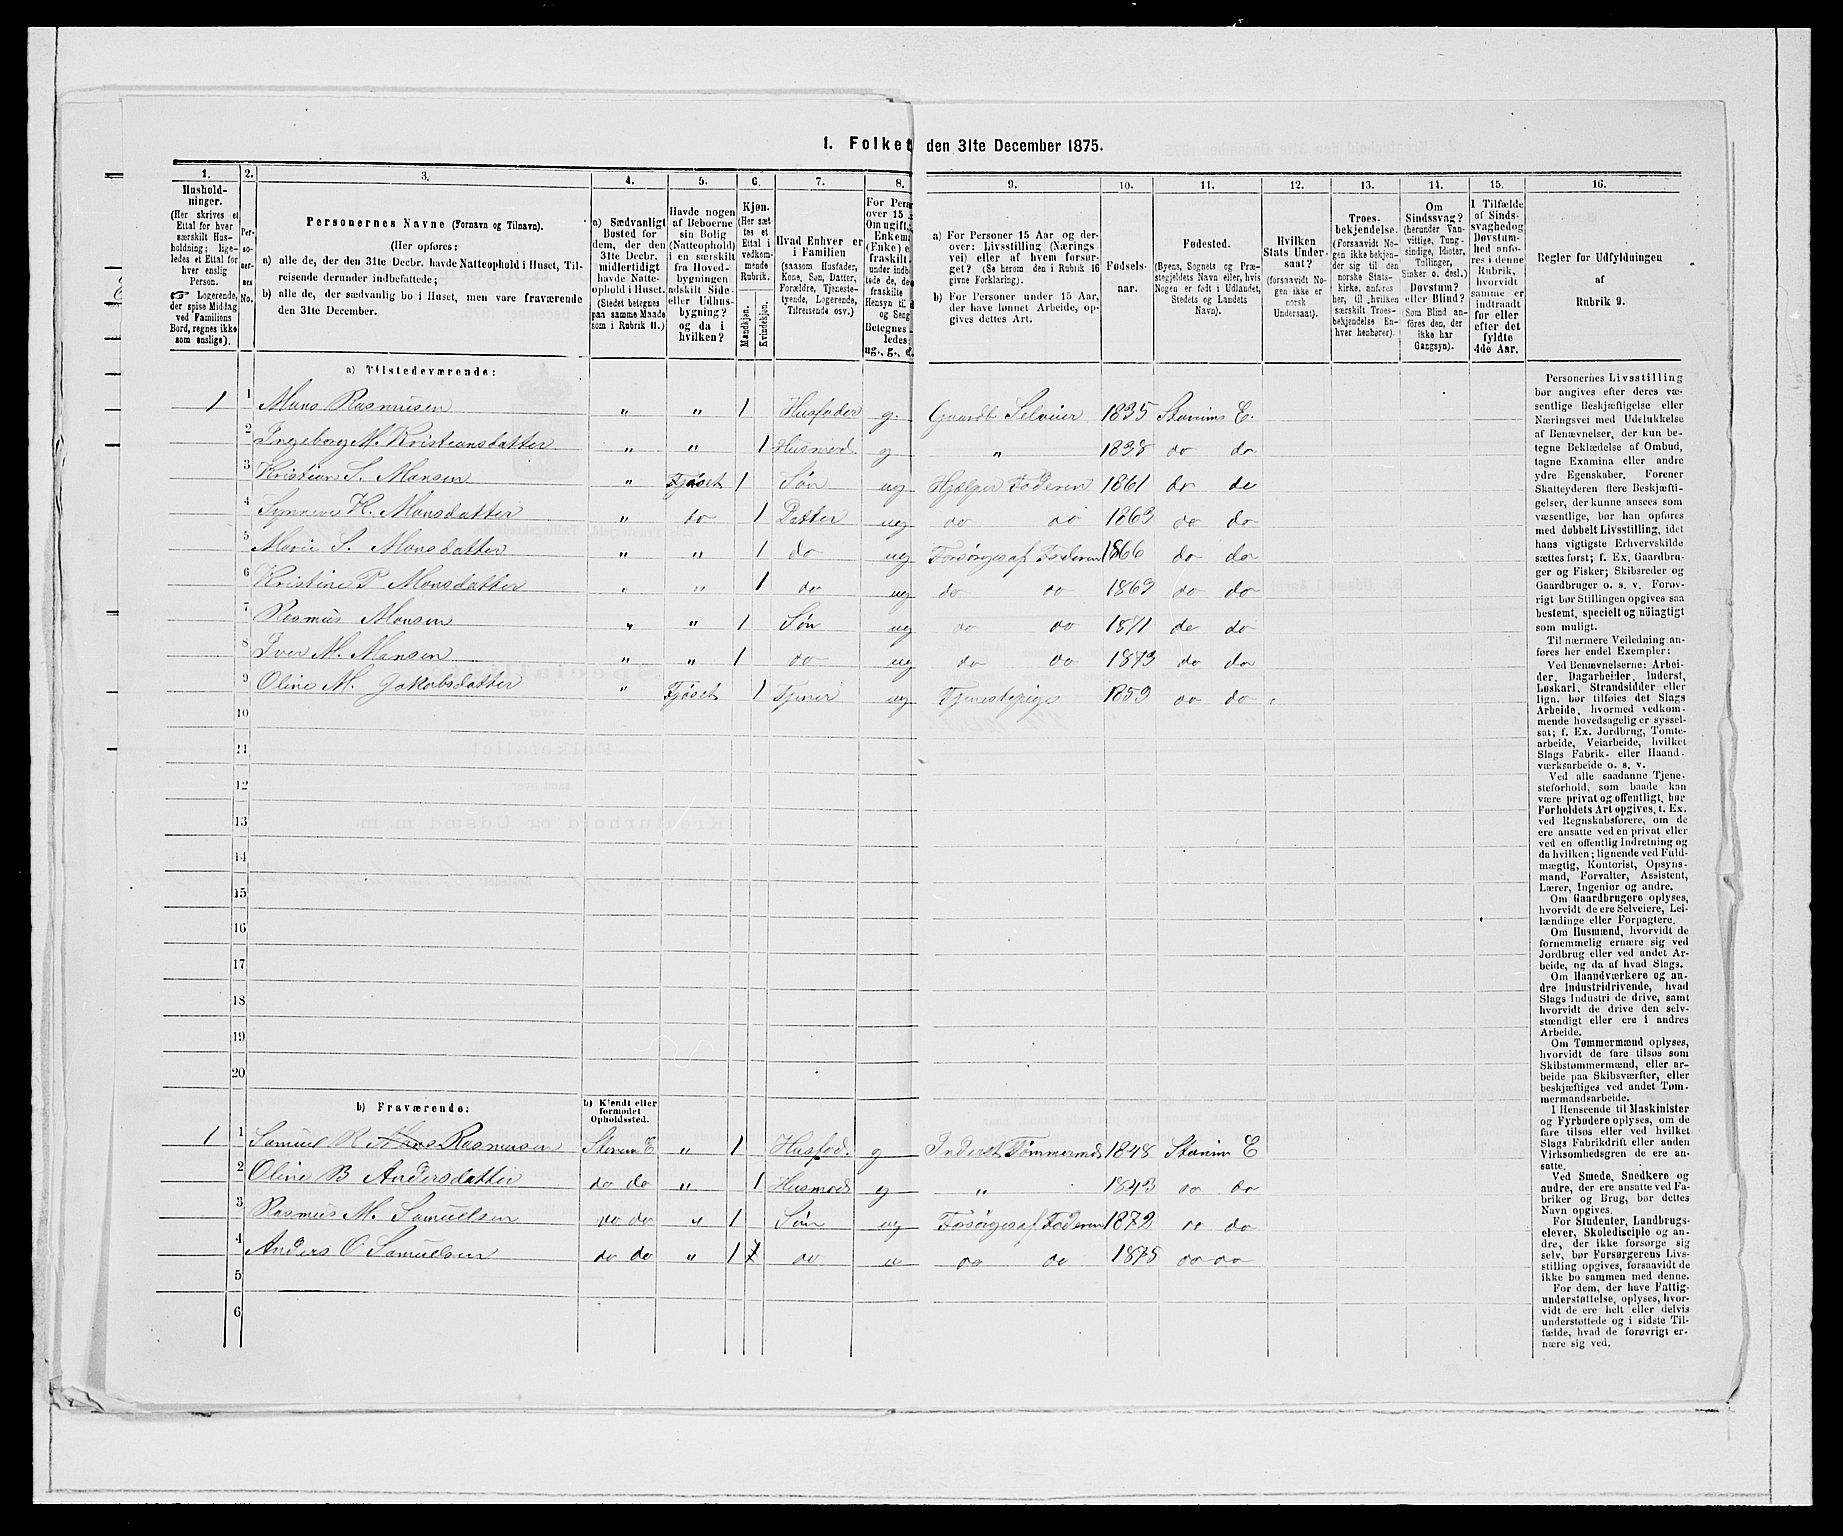 1. Folket den 31te December 1875.
1. 2. 3. 4. 5. 6. 7. 8. 9. 10. 11. 12. 13. 14. 15. 16.
Hushold-
ninger.
(Her skrives et
Ettal for hver
særskilt Hus-
holdning; lige-
ledes et Ettal for
hver enslig
Person.
☞ Logerende,
der spise Middag
ved Familiens
Bord, regnes ikke
som enslige).
Per-
so-
ner-
nes
No.
Personernes Navne (Fornavn og Tilnavn).
(Her opføres:
a) alle de, der den 31te Decbr. havde Natteophold i Huset, Til-
reisende derunder indbefattede;
b) alle de, der sædvanlig bo i Huset, men vare fraværende
den 31te December.
a) Sædvanligt
Bosted for
dem, der den
31te Decbr.
midlertidigt
havde Natte-
ophold i Huset.
(Stedet betegnes
paa samme Maade
som i Rubrik 11.)
Havde nogen
af Beboerne
sin Bolig
(Natteophold)
i en særskilt
fra Hoved-
bygningen
adskilt Side-
eller Udhus-
bygning?
og da i
hvilken?
Kjøn.
(Her sæt-
tes et
Ettal i
vedkom-
mende
Rubrik.
Mandkjøn.
Kvindekjøn.
Hvad Enhver er
i Familien
(saasom Husfader,
Kone, Søn, Datter,
Forældre, Tjeneste-
tyende, Logerende,
Tilreisende osv.)
For Pers
over 15
Om ugift,
Enkem
(Enke) e
fraskilt
under indb
tede de, de
fraskilte
Hensyn til
og Seng
Betegnes
ledes
ug., g., e
a) For Personer 15 Aar og der-
over: Livsstilling (Nærings
vei) eller af hvem forsør-
get? (Se herom den i Rubrik 16
givne Forklaring).
b) For Personer under 15 Aar,
der have lønnet Arbeide, op-
gives dettes Art.
Fødsels-
aar.
Fødested.
(Byens, Sognets og Præ-
stegjeldets Navn eller, hvis
Nogen er født i Udlandet,
Stedets og Landets
Navn).
Hvilken
Stats Under-
saat?
(forsaavidt No-
gen ikke er
norsk
Undersaat).
Troes-
bekjendelse.
(Forsaavidt No-
gen ikke bekjen-
der sig til den
norske Stats-
kirke, anføres
her, til hvilken
særskilt Troes-
bekjendelse En-
hver henhører).
Om
Sindssvag?
(herunder Van-
vittige, Tung-
sindige, Idioter,
Tullinger,
Sinker o. desl.)
Døvstum?
eller Blind?
(Som Blind an-
føres den, der
ikke har
Gangsyn).
I Tilfælde
af Sinds-
svaghed og
Døvstum-
hed anfø-
res i denne
Rubrik,
hvorvidt
samme er
indtraadt
før eller
efter det
fyldte
4de Aar.
Regler for Udfyldningen
af
Rubrik 9.
a) Tilstedeværende:
1 1 Mons Rasmusen " " 1 Husfader g. Gaardb Selveier 1835 Stonims E.
2 Ingeborg M. Kristiansdatter " " 1 Husmod g " 1838 do do
3 Kristian S. Monsen " Fjøset 1 Søn ug Hjælper Faderen 1861 do do
4 Synneve H. Monsdatter " do 1 Datter ug do do 1863 do do
5 Marie S. Monsdatter " " 1 do ug Forsørges af Faderen 1866 do do
6 Kristine P Monsdatter " " 1 do ug do do 1869 do do
7 Rasmus Monsen " " 1 Søn ug do do 1871 do do
8 Iver M. Monsen " " 1 do ug do do 1873 do do
9 Oline M. Jakobsdatter " Fjøset 1 Tjener ug Tjenestepige 1859 do do
10
11
12
13
14
15
16
17
18
19
20
b) Fraværende:
b) Kjendt eller
formodet
Opholdssted.
1 1 Samuel R Rasmusen " 1 Husfad. g Inderst Tømmermd 1848 Stonim E
2 Oline B Andersdatter do do " 1 Husmod g " 1843 do do
3 Rasmus M. Samuelsen do do " 1 Søn ug Forsørges af Faderen 1872 do do
4 Anders O Samuelsen do do " 1 do u do do 1875 do do
5
6
Personernes Livsstilling
bør angives efter deres væ-
sentlige Beskjæftigelse eller
Næringsvei med Udelukkelse
af Benævnelser, der kun be-
tegne Beklædelse af Ombud,
tagne Examina eller andre
ydre Egenskaber. Forener
Skatteyderen flere Beskjæfti-
gelser, der kunne ansees som
væsentlige, bør han opføres
med dobbelt Livsstilling, idet
hans vigtigste Erhvervskilde
sættes først; f. Ex. Gaardbru-
ger og Fisker; Skibsreder og
Gaardbruger o. s. v. Forøv-
rigt bør Stillingen opgives saa
bestemt, specielt og nöiagtigt
som muligt.
Til nærmere Veiledning an-
føres her endel Exempler:
Ved Benævnelserne: Arbei-
der, Dagarbeider, Inderst,
Løskarl, Strandsidder eller
lign. bør tilføies det Slags
Arbeide, hvormed vedkom-
mende hovedsagelig er syssel-
sat; f. Ex. Jordbrug, Tomte-
arbeide, Veiarbeide, hvilket
Slags Fabrik- eller Haand-
værksarbeide o. s. v.
Ved alle saadanne Tjene-
steforhold, som baade kan
være privat og offentligt, bør
Forholdets Art opgives, t. Ex.
ved Regnskabsførere, om de
ere ansatte ved en privat eller
ved en offentlig Indretning og
da hvilken; lignende ved Fuld-
mægtig, Kontorist, Opsyns-
mand, Forvalter, Assistent,
Lærer, Ingeniør og andre.
Om Gaardbrugere oplyses,
hvorvidt de ere Selveiere, Lei-
lændinge eller Forpagtere.
Om Husmænd, hvorvidt de
fornemmelig ernære sig ved
Jordbrug eller ved andet Ar-
beide, og da af hvad Slags.
Om Haandværkere og an-
dre Industridrivende, hvad
Slags Industri de drive, samt
hvorvidt de drive den selv-
stændigt eller ere i andres
Arbeide.
Om Tømmermænd oplyses,
hvorvidt de fare tilsøs som
Skibstømmermænd, eller ar-
beide paa Skibsværfter, eller
beskjæftiges ved andet Tøm-
mermandsarbeide.
I Henseende til Maskinister
og Fyrbødere oplyses, om de
fare tilsøs eller ved hvilket
Slags Fabrikdrift eller anden
Virksomhedsgren de ere an-
satte.
Ved Smede, Snedkere og
andre, der ere ansatte ved Fa-
briker og Brug, bør dettes
Navn opgives.
For Studenter, Landbrugs-
elever, Skoledisciple og an-
dre, der ikke forsørge sig
selv, bør Forsørgerens Livs-
stilling opgives, forsaavidt de
ikke bo sammen med denne.
For dem, der have Fattig-
understøttelse, oplyses, hvor-
vidt de ere helt eller delvis
understøttede og i sidste Til-
fælde, hvad de forøvrigt er-
nære sig ved.